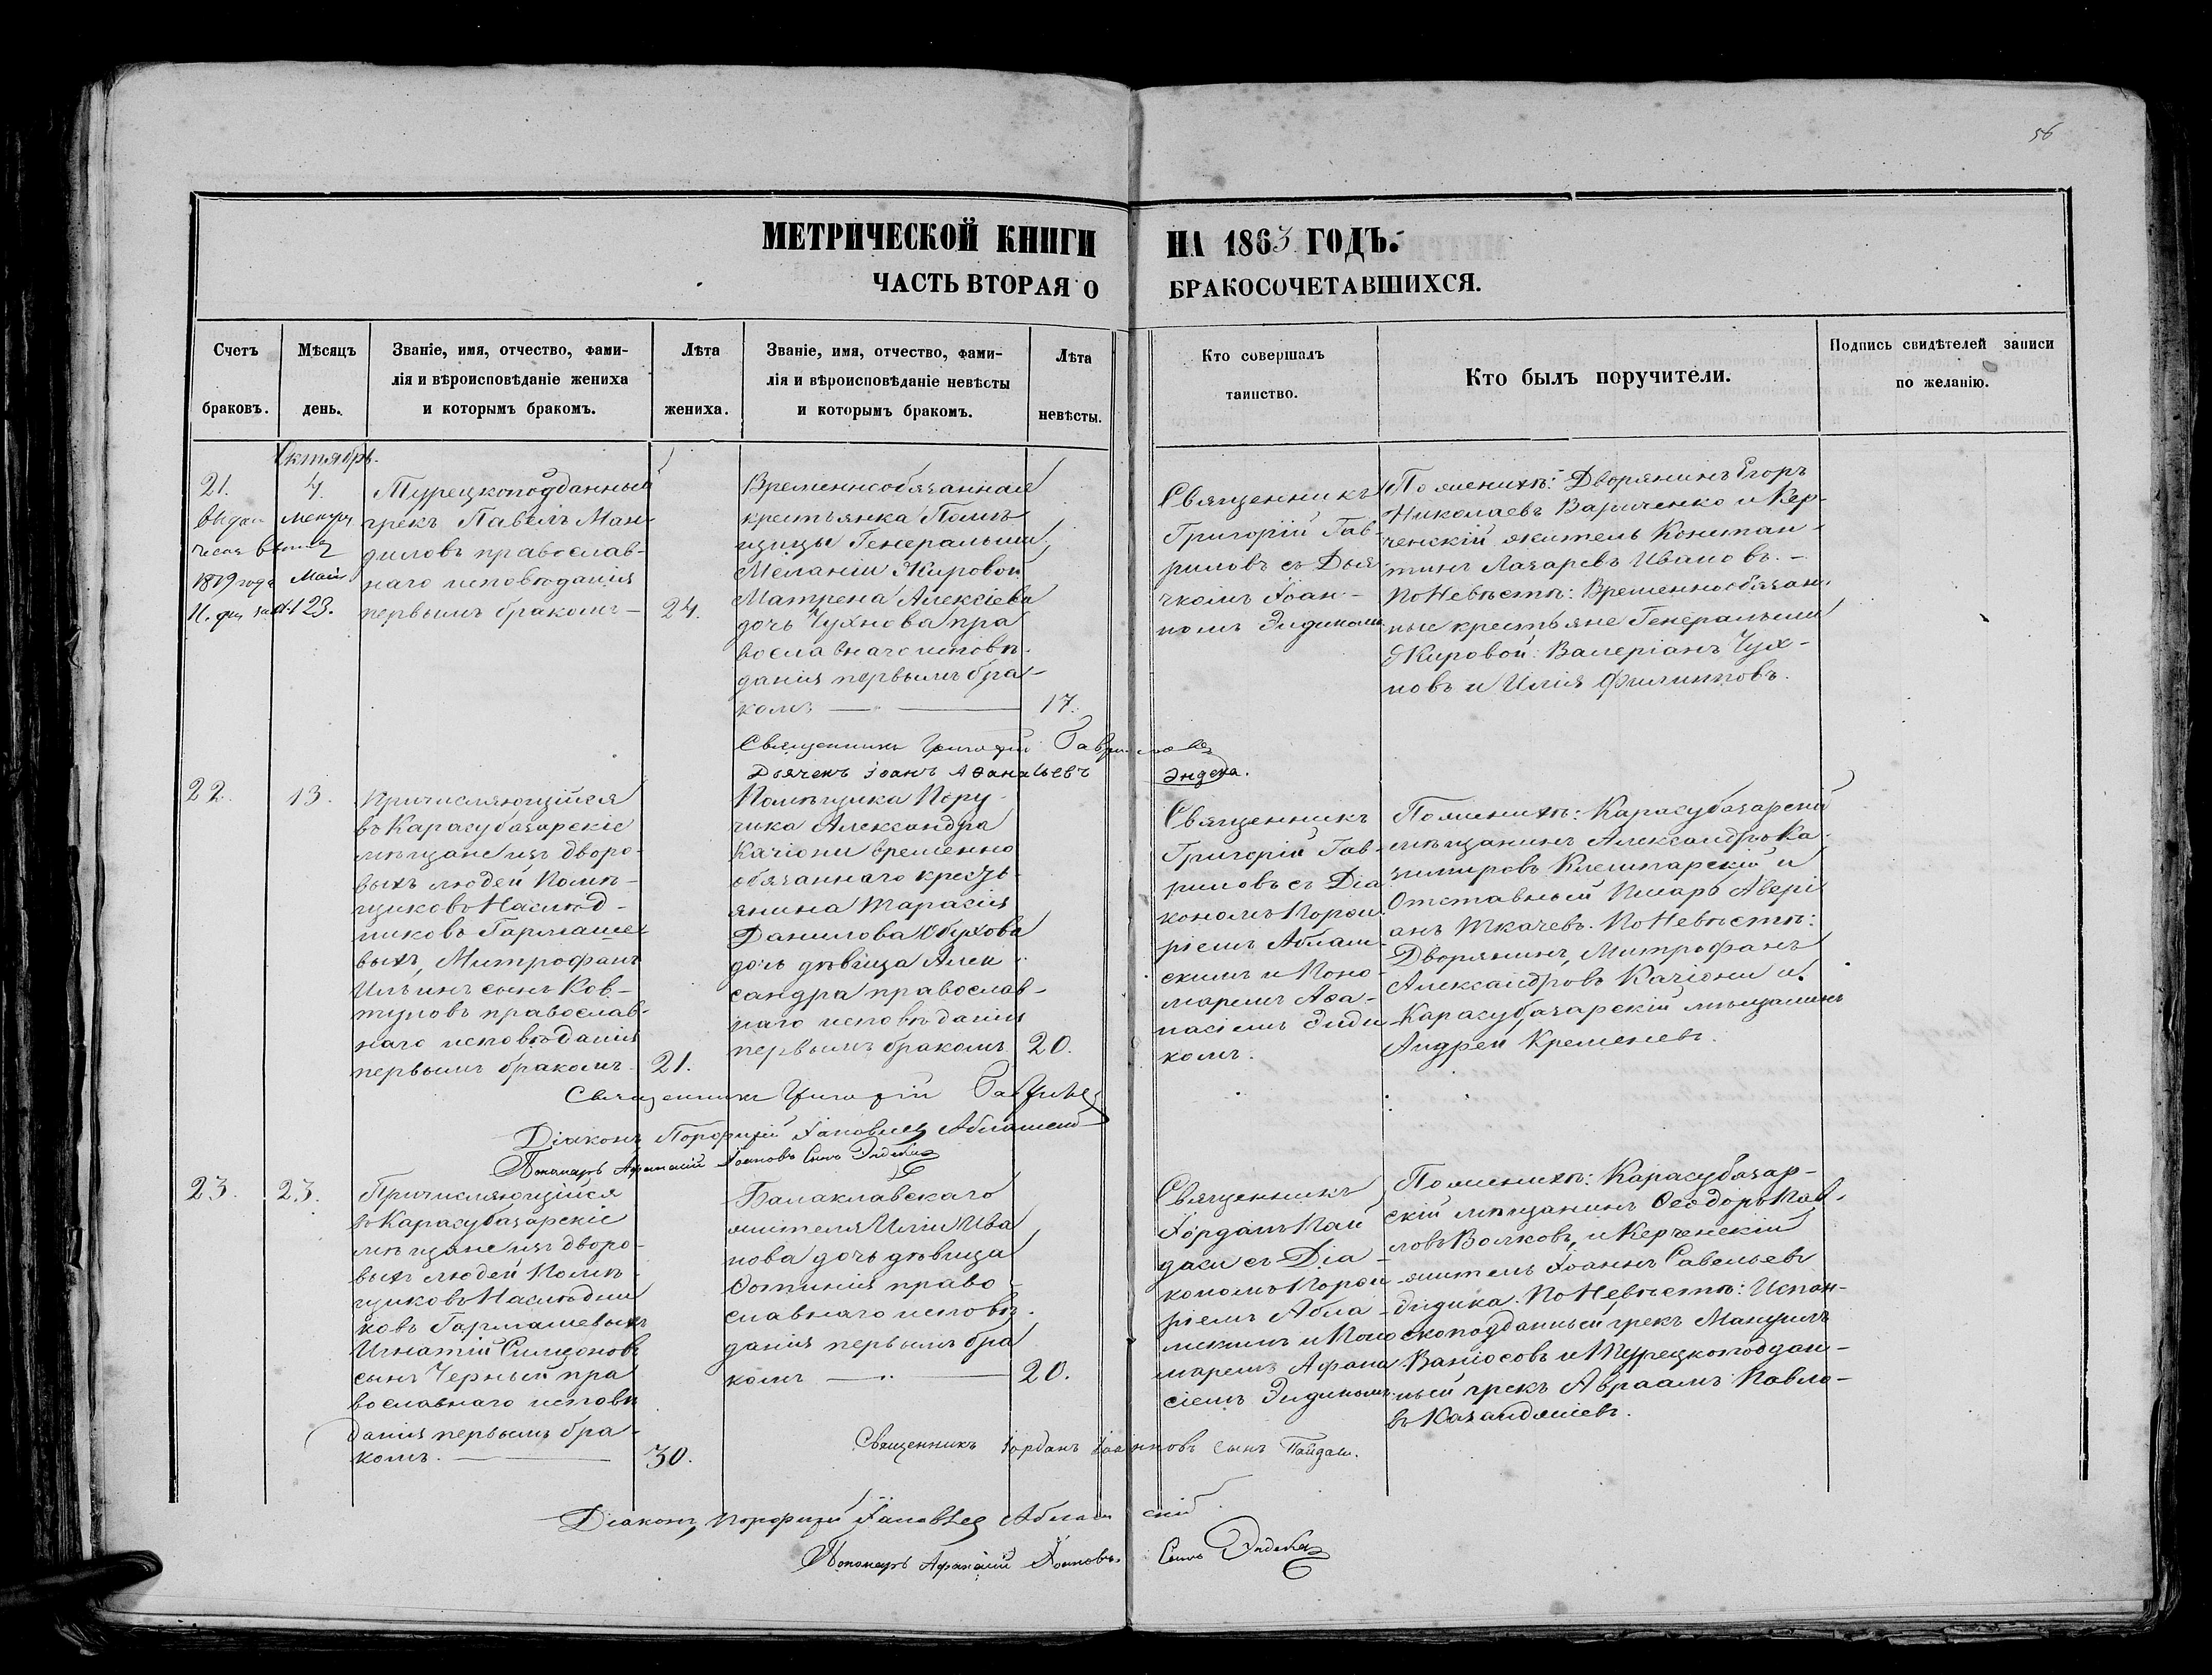 56
МЕТРИЧЕСКОЙ КНИГИ НА 1863 ГОДЪ.
ЧАСТЬ ВТОРАЯ О БРАКОСОЧЕТАВШИХСЯ.
Счетъ браковъ.
Мѣсяцъ день.
Званіе, имя, отчество, фами-
лія и вѣроисповѣданіе жениха
и которымъ бракомъ.
Лѣта жениха.
Званіе, имя, отчество, фами-
лія и вѣроисповѣданіе невѣсты
и которымъ бракомъ.
Лѣта невѣсты.
Кто совершалъ
таинство.
Кто былъ поручители.
Подпись свидѣтелей записи
по желанію.
Октябрь.
21.
4.
1879 года
Май
123.
Турецкоподданный
грекъ Павелъ Ман-
диловъ православ-
наго исповѣданія
первымъ бракомъ —
24.
Временнообязанная
крестьянка Помѣ-
щицы Генеральши
Меланіи Жировой
Матрена Алексіева
дочь Чухнова пра
вославнаго исповѣ-
данія первымъ бра-
комъ —
17.
Священникъ
Григорій Гав-
риловъ съ Дья-
чкомъ Іоан-
номъ Эндикомъ
По женихѣ: Дворянинъ Егоръ
Николаевъ Вариченко и Кер-
ченскій житель Констан-
тинъ Лазаревъ Ивановъ. —
По Невѣстѣ: Временнообязан-
ные крестьяне Генеральши
Жировой: Валеріанъ Чух-
новъ и Илія Филипповъ.
Священникъ Григорій Гавриловъ
Дьячекъ Іоанъ Аѳанасьевъ Эндека.
22.
13.
Причисляющійся
въ Карасубазарскіе
мѣщане изъ дворо-
выхъ людей Помѣ-
щиковъ Наслѣд-
никовъ Гармаше-
выхъ, Митрофанъ
Ильинъ сынъ Ков-
туновъ православ-
наго исповѣданія
первымъ бракомъ.
21.
Помѣщика Пору-
чика Александра
Качіони временно
обязаннаго кресть-
янина Тарасія
Данилова Обухова
дочь дѣвица Алек-
сандра православ-
наго исповѣданія
первымъ бракомъ.
20.
Священникъ
Григорій Гав-
риловъ съ Діа
кономъ Порфи
ріемъ Аблаж-
скимъ и Поно-
маремъ Аѳа-
насіемъ Энди
комъ.
По женихѣ: Карасубазарскій
мѣщанинъ Александръ Ка-
зимировъ Клемпарскій и
Отставный Писарь Авері
анъ Ткачевъ. По Невѣстѣ:
Дворянинъ, Митрофанъ
Александровъ Качіони и
Карасубазарскій мѣщанинъ
Андрей Кременевъ.
Священникъ Григорій Гавриловъ
Діаконъ Порфирій Іаковлевъ
Пономарь Афанасій Іоановъ Сынъ Эндека
23.
23.
Причисляющійся
въ Карасубазарскіе
мѣщане изъ дворо-
выхъ людей Помѣ-
щиковъ Наслѣдни
ковъ Гармашевыхъ
Игнатій Симеоновъ
сынъ Черный пра
вославнаго исповѣ
данія первымъ бра-
комъ. —
30.
Балаклавскаго
жителя Иліи Ива
нова дочь дѣвица
Фотинія право-
славнаго исповѣ-
данія первымъ бра
комъ —
20.
Священникъ
Іорданъ Пай
даси съ Діа-
кономъ Порфи
ріемъ Абла-
жскимъ и Поно
маремъ Афана
сіемъ Эндикомъ.
По женихѣ: Карасубазар-
скій мѣщанинъ Ѳеодоръ Пав-
ловъ Волковъ, и Керченскій
житель Іоаннъ Савельевъ
Дидика. По Невѣстѣ: Испан-
скоподданный грекъ Мануилъ
Ваніосовъ и Турецкоподдан-
ный грекъ Авраамъ Павло-
въ Казанджіевъ.
Священникъ Іорданъ Іоанновъ сынъ Пайдаси.
Діаконъ, Порфирій Іаковлев
Пономарь Афанасій Іоановъ Сынъ Эндека